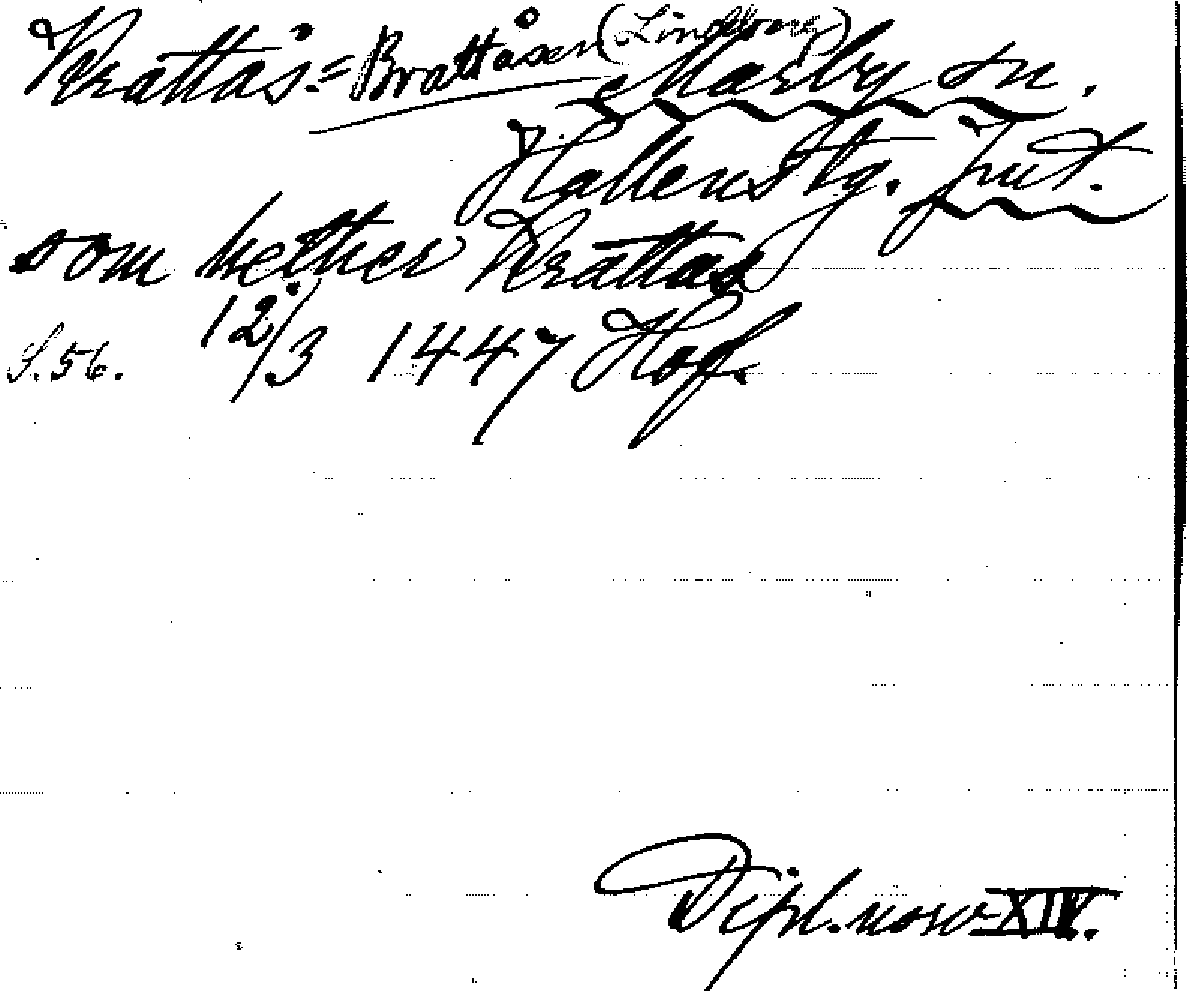 Krattås = Brattåsen (Lindberg) Marby sn.
Hallens tg. Jmt.
som hether Krattas
S. 56. 12/3 1447 Hof.
Dipl. norv. XIV.